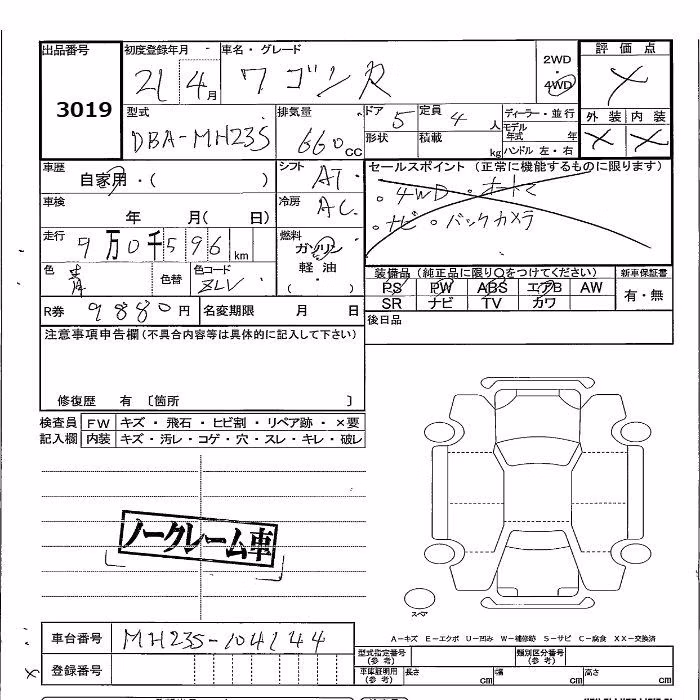 出品番号 初度登録年月 車名・グレード 2WD・4WD 評価点
3019 21 4月 ワゴンR
型式 排気量 ドア 5 定員 4人 ディーラー・並行 外装 内装
DBA-MH23S 660cc 形状 積載 kg モデル年式 年
ハンドル 左・右
車歴 シフト AT セールスポイント (正常に機能するものに限ります)
自家用・( ) ・4WD ・オートマ
車検 冷房 AC ・ナビ ・バックカメラ
年 月( 日)
走行 燃料
9万0千596km ガソリン
色 青 色替 色コード ZLV 軽油
( ・ )
装備品 (純正品に限り○をつけてください) 新車保証書
PS PW ABS エアB AW 有・無
SR ナビ TV カワ
R券 9880円 名変期限 月 日
後日品
注意事項申告欄(不具合内容等は具体的に記入して下さい)
修復歴 有 〔箇所 〕
検査員 FW キズ・飛石・ヒビ割・リペア跡・×要
記入欄 内装 キズ・汚レ・コゲ・穴・スレ・キレ・破レ
ノークレーム車
スペア
車台番号 MH23S-104144
登録番号
A-キズ E-エクボ U-凹み W-補修跡 S-サビ C-腐食 XX-交換済
型式指定番号(参考) 類別区分番号(参考)
車庫証明用(参考) 長さ cm 幅 cm 高さ cm